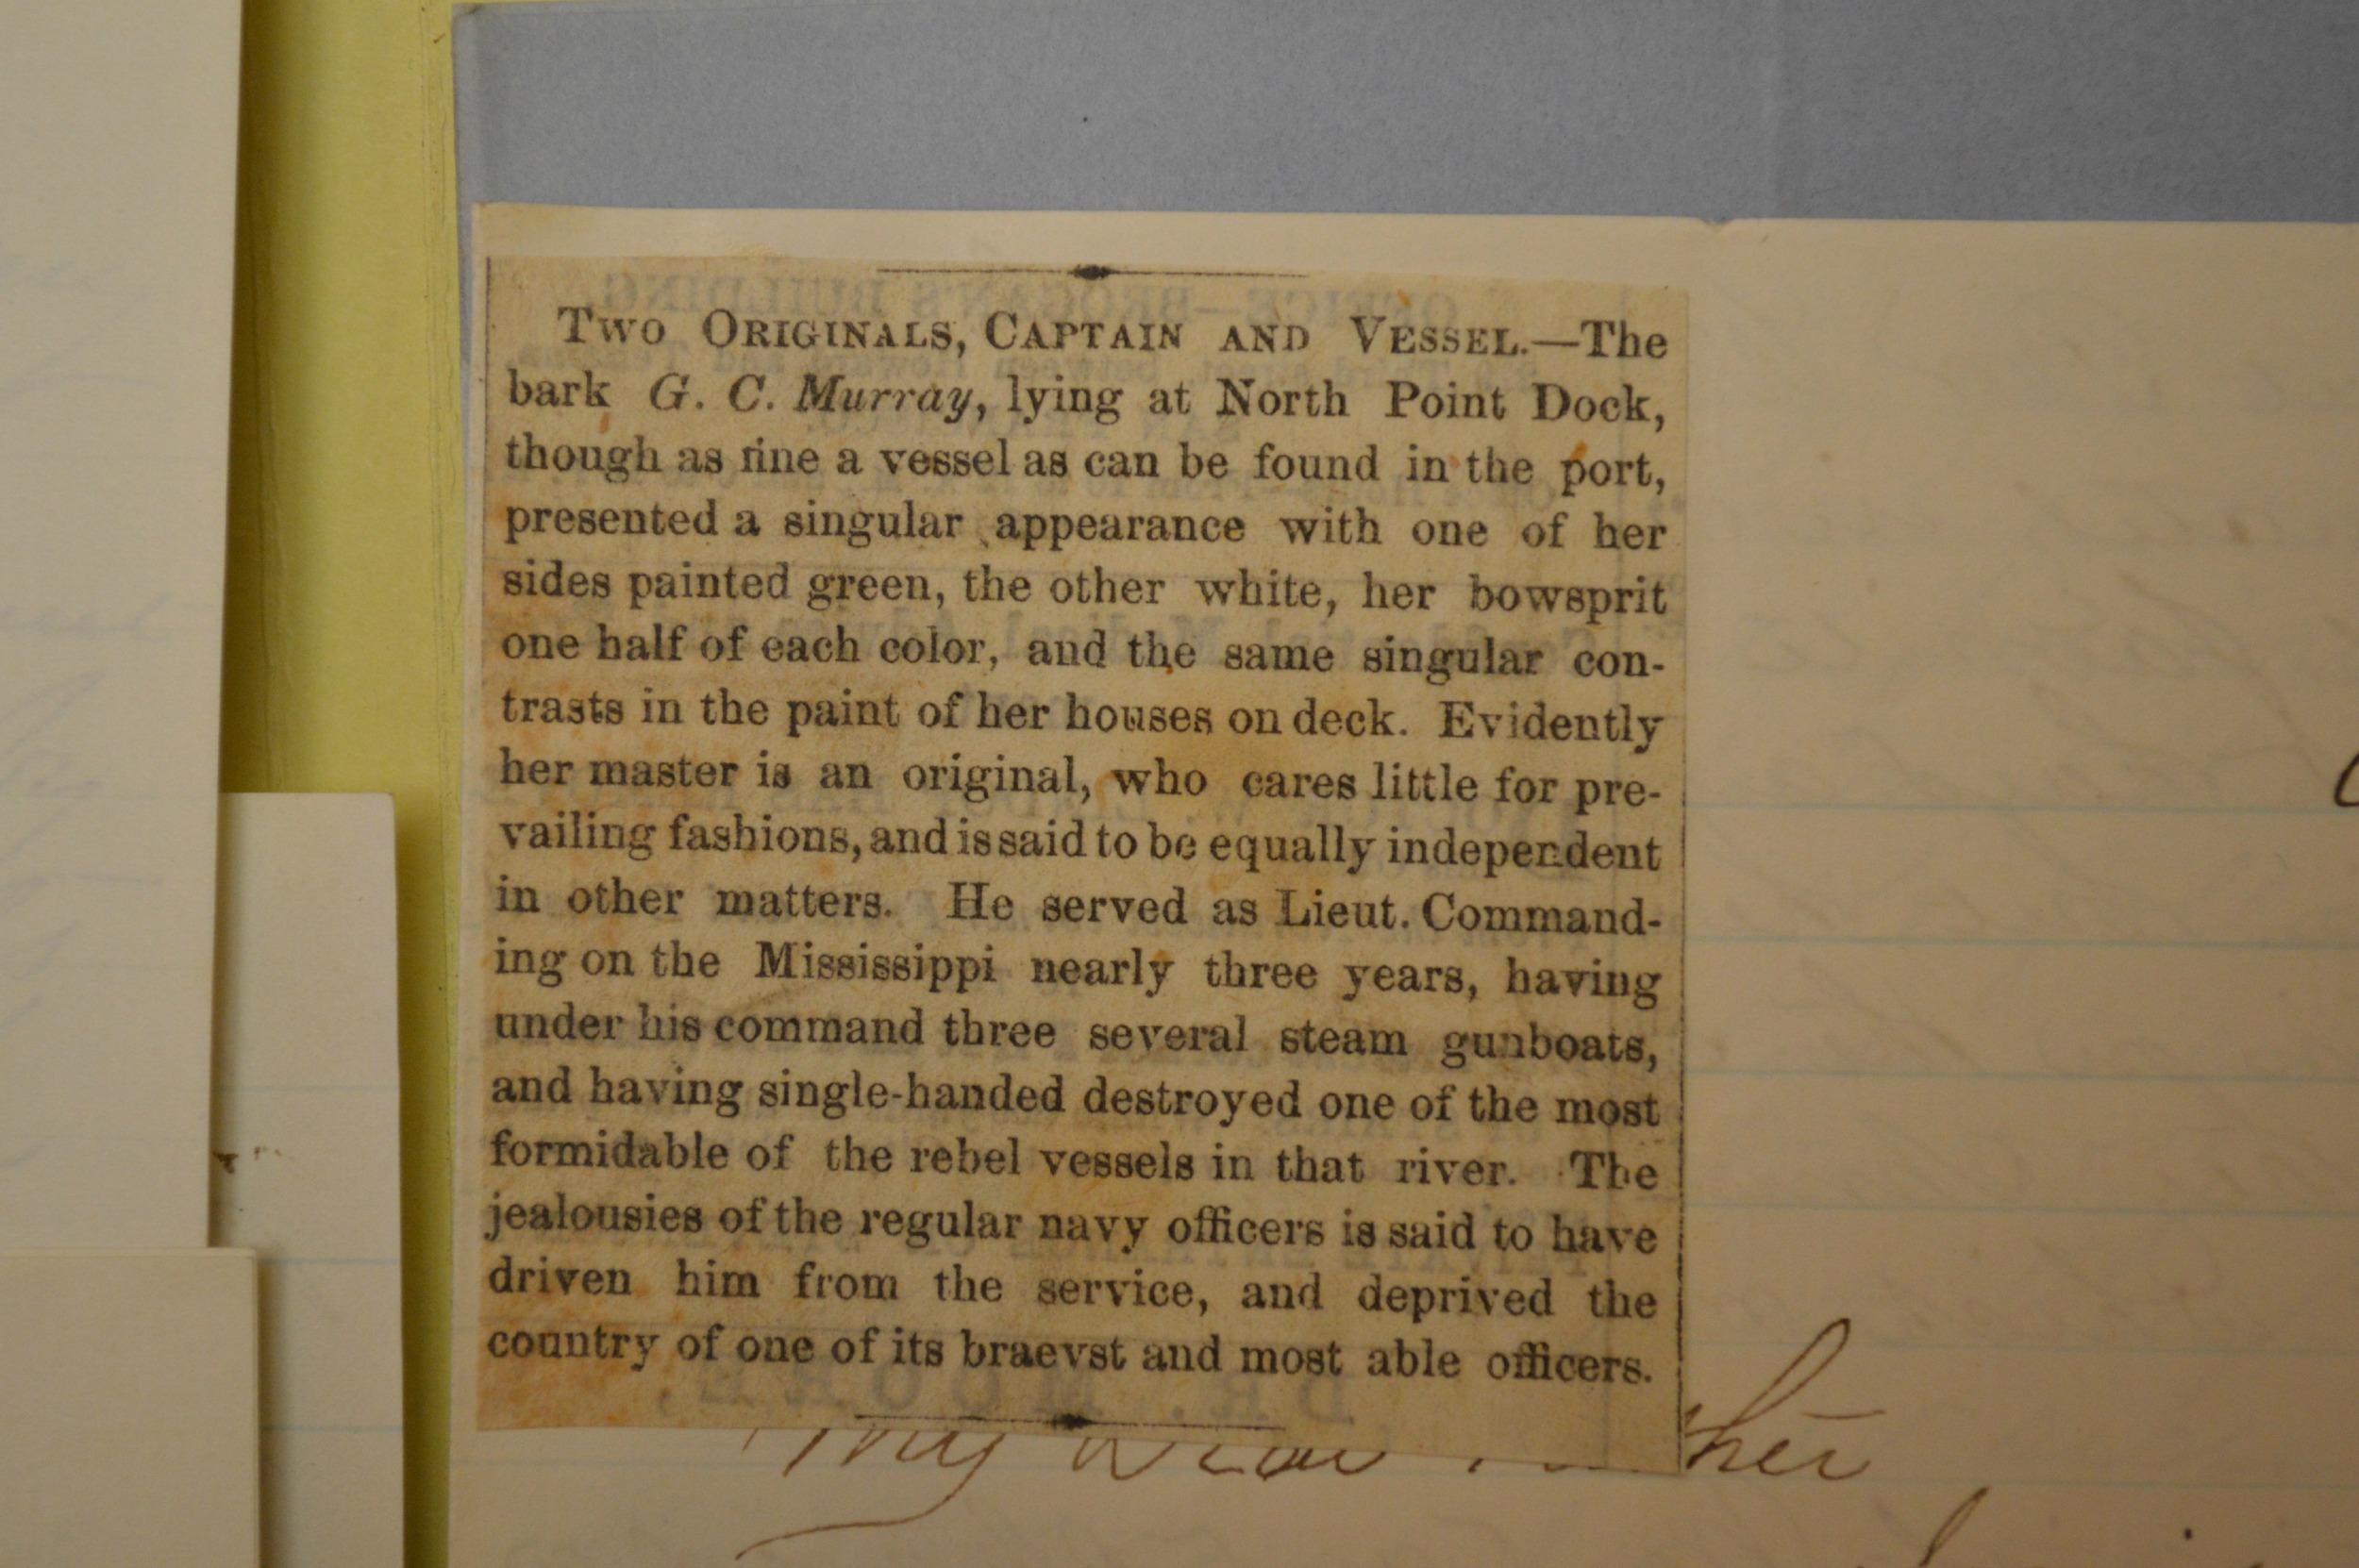 TWO ORIGINALS, CAPTAIN AND VESSEL.—The
bark G. C. Murray, lying at North Point Dock,
though as fine a vessel as can be found in the port,
presented a singular appearance with one of her
sides painted green, the other white, her bowsprit
one half of each color, and the same singular con-
trasts in the paint of her houses on deck. Evidently
her master is an original, who cares little for pre-
vailing fashions, and is said to be equally independent
in other matters. He served as Lieut. Command-
ing on the Mississippi nearly three years, having
under his command three several steam gunboats,
and having single-handed destroyed one of the most
formidable of the rebel vessels in that river. The
jealousies of the regular navy officers is said to have
driven him from the service, and deprived the
country of one of its braevst and most able officers.
My